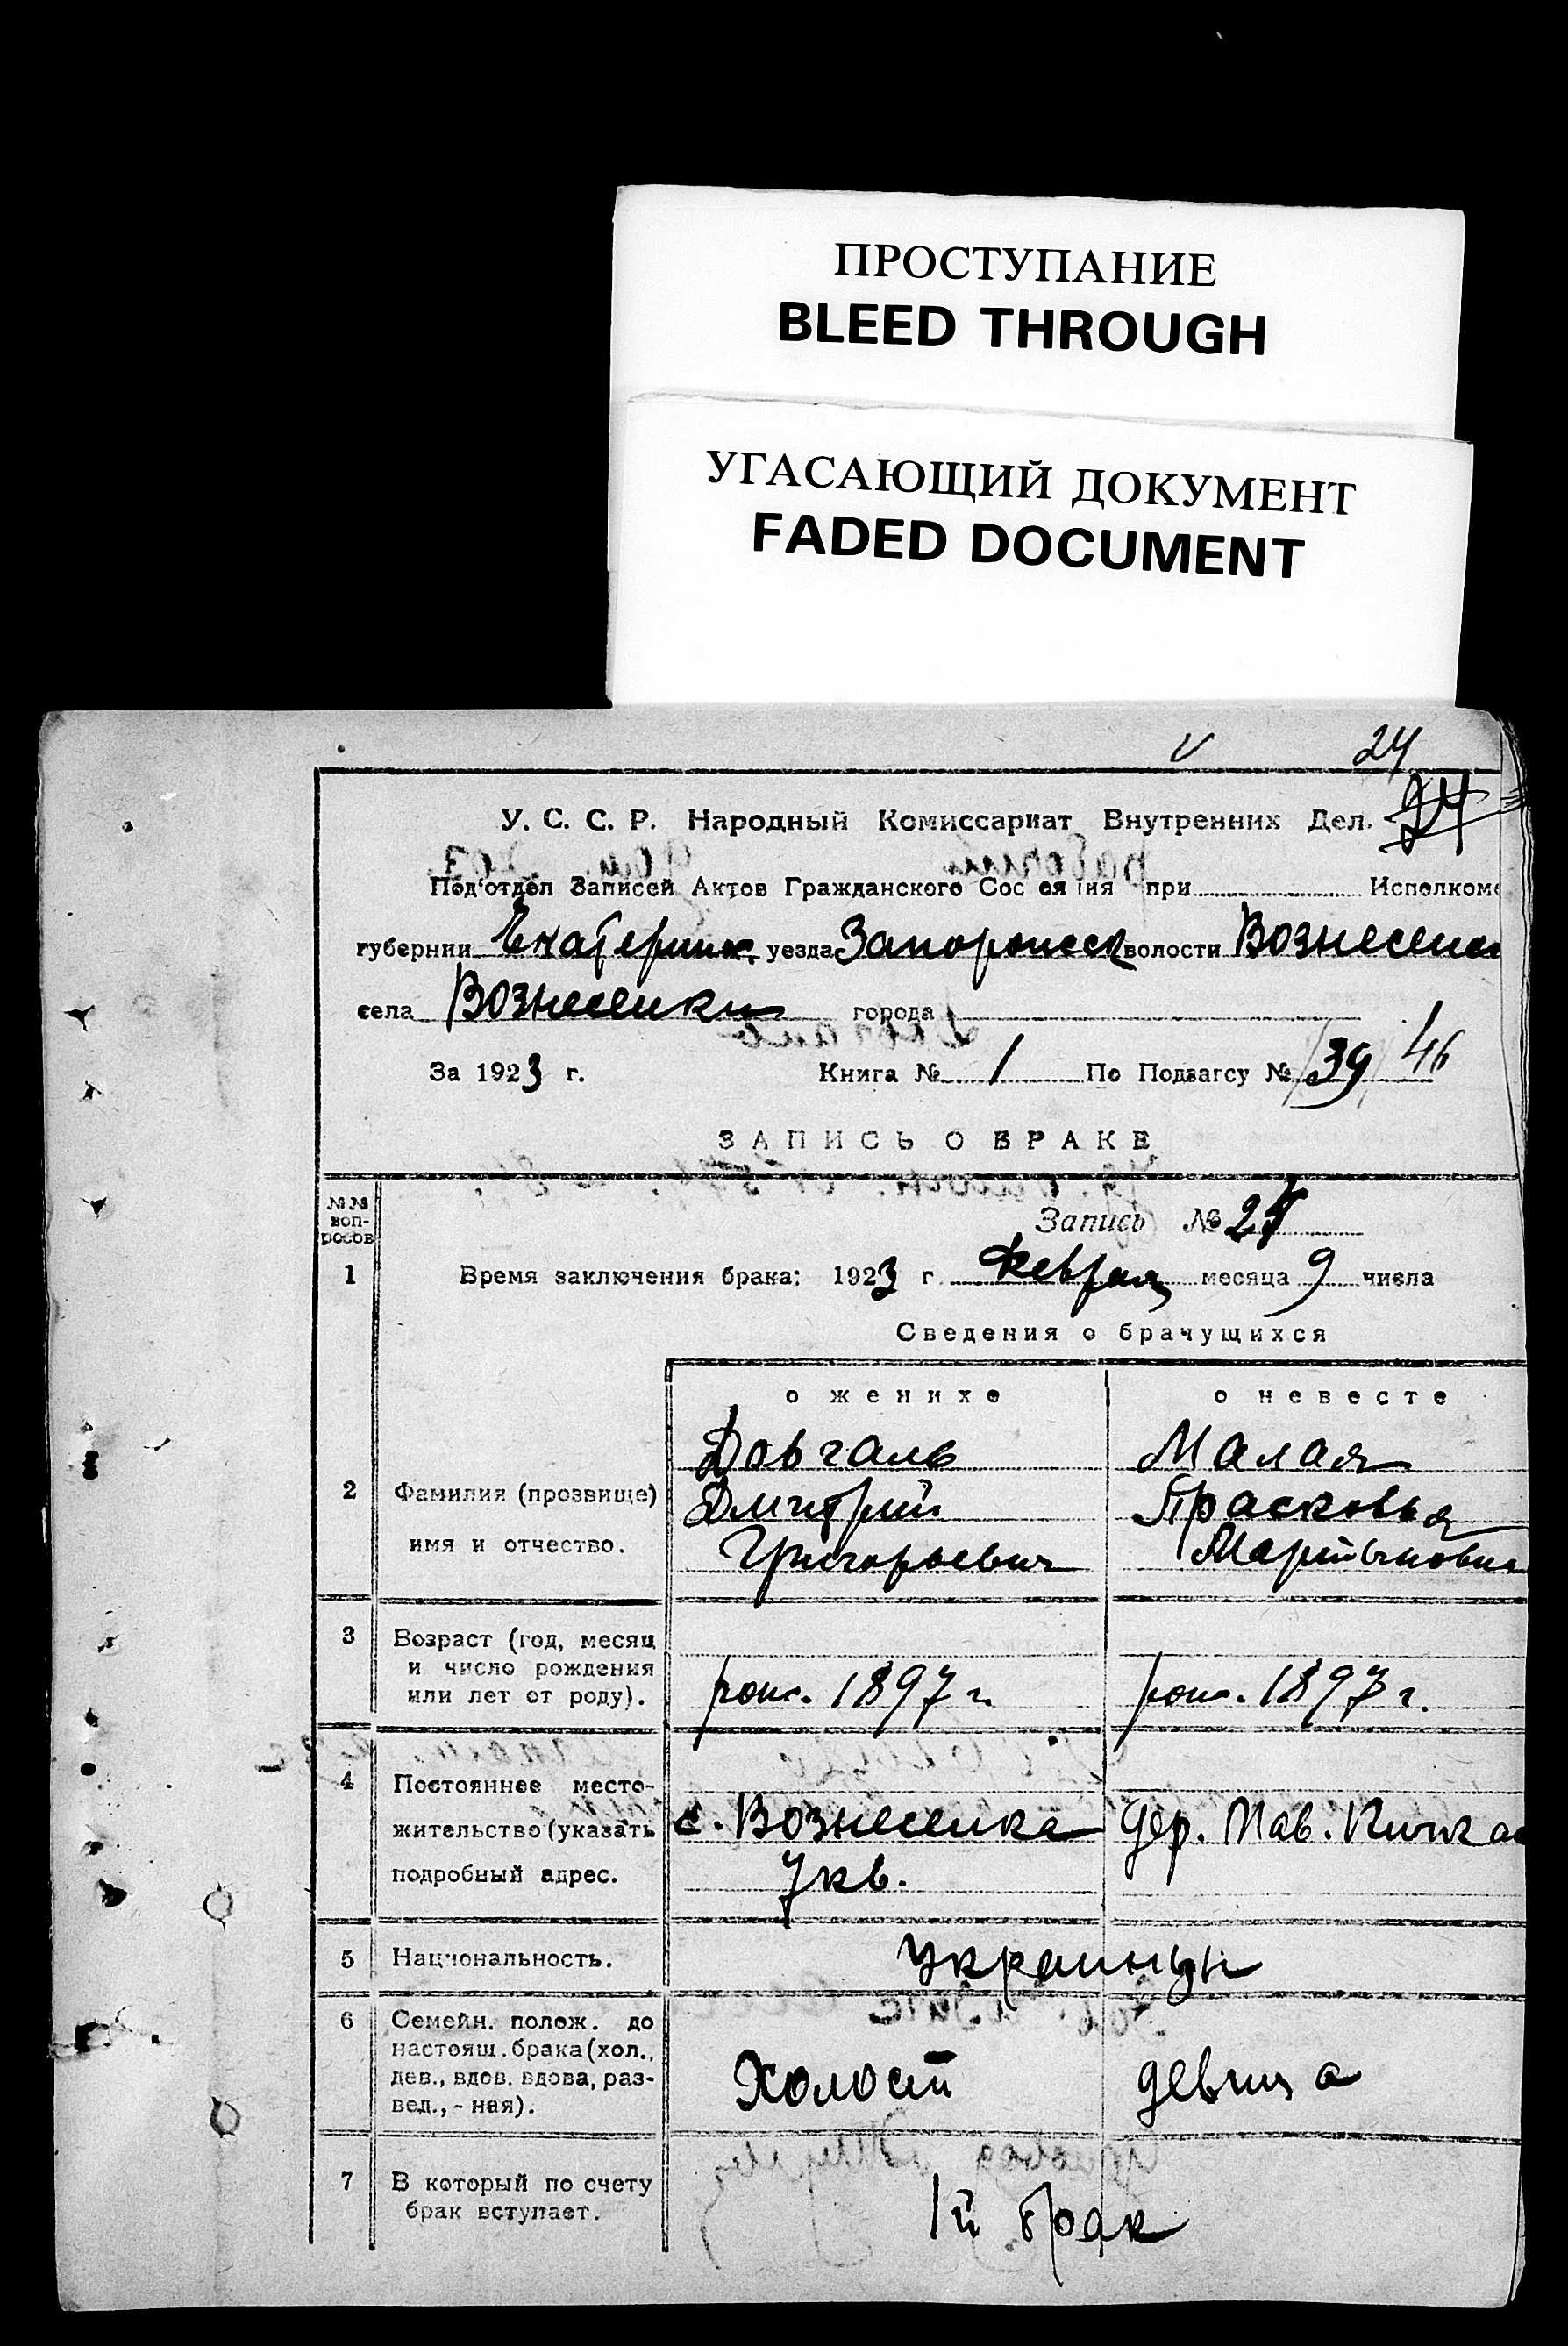 ПРОСТУПАНИЕ
BLEED THROUGH
УГАСАЮЩИЙ ДОКУМЕНТ
FADED DOCUMENT
24
24
У. С. С. Р. Народный Комиссариат Внутренних Дел.
Под'отдел Записей Актов Гражданского Сос ея ия при Исполкоме
губернии Екатерин. уезда Запорожск волости Вознесенск
села Вознесенки города
За 1923 г. Книга № 1 По Подзагсу № 39 46
ЗАПИСЬ О БРАКЕ
№№ воп-росов
Запись №
1 Время заключения брака: 1923 г. февраля месяца 9 числа
Сведения о брачущихся
о женихе о невесте
Довгаль Малая
2 Фамилия (прозвище) Дмитрий Прасковья
имя и отчество. Григорьевич Мартыновна
3 Возраст (год, месяц
и число рождения
или лет от роду). рожд. 1897 г. рожд. 1897 г.
4 Постояннее место-
жительство (указать с. Вознесенка дер. Пав. Кичкас
подробный адрес. 7 кв.
5 Национальность. украинцы
6 Семейн. полож. до
настоящ. брака (хол.,
дев., вдов. вдова, раз- Холост девица
вед., - ная).
7 В который по счету
брак вступает. 1й брак